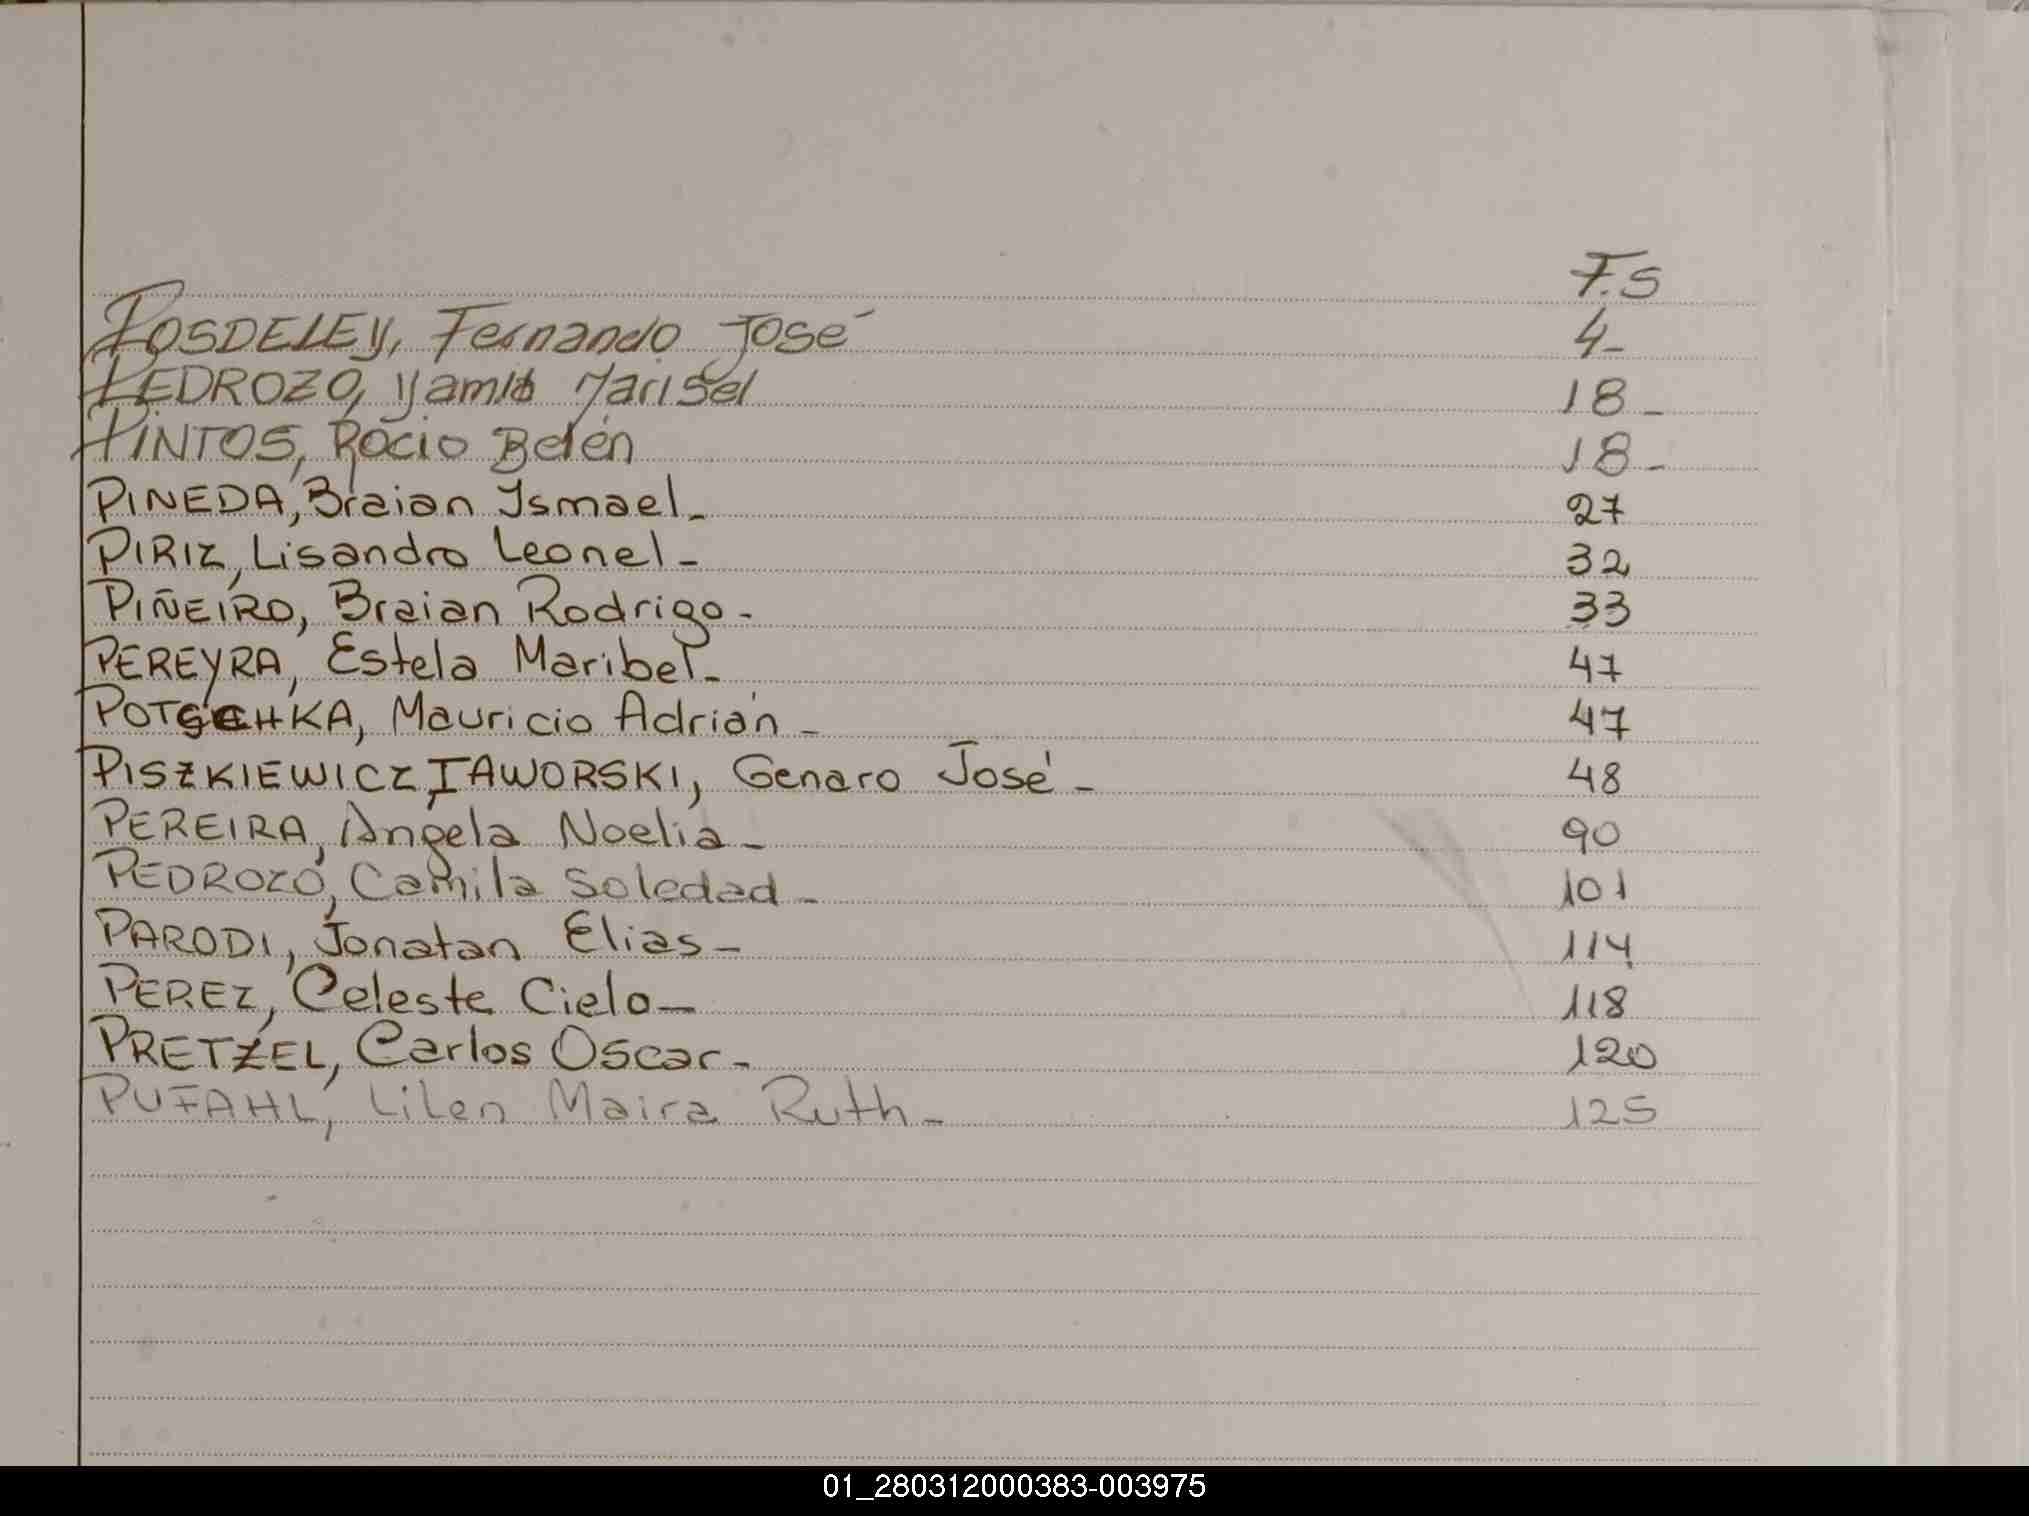 F.S
POSDELEY, Fernando José 4-
PEDROZO, Marisel 18-
PINTOS, Rocio Belén 18-
PINEDA, Braian Ismael- 27
PIRIZ, Lisandro Leonel- 32
PIÑEIRO, Braian Rodrigo- 33
PEREYRA, Estela Maribel- 47
POTSCHKA, Mauricio Adrián- 47
PISZKIEWICZ IAWORSKI, Genaro José- 48
PEREIRA, Angela Noelia- 90
PEDROZO, Camila Soledad- 101
PARODI, Jonatan Elias- 114
PEREZ, Celeste Cielo- 118
PRETZEL, Carlos Oscar- 120
PUFAHL, Lilen Maira Ruth- 125
01_280312000383-003975